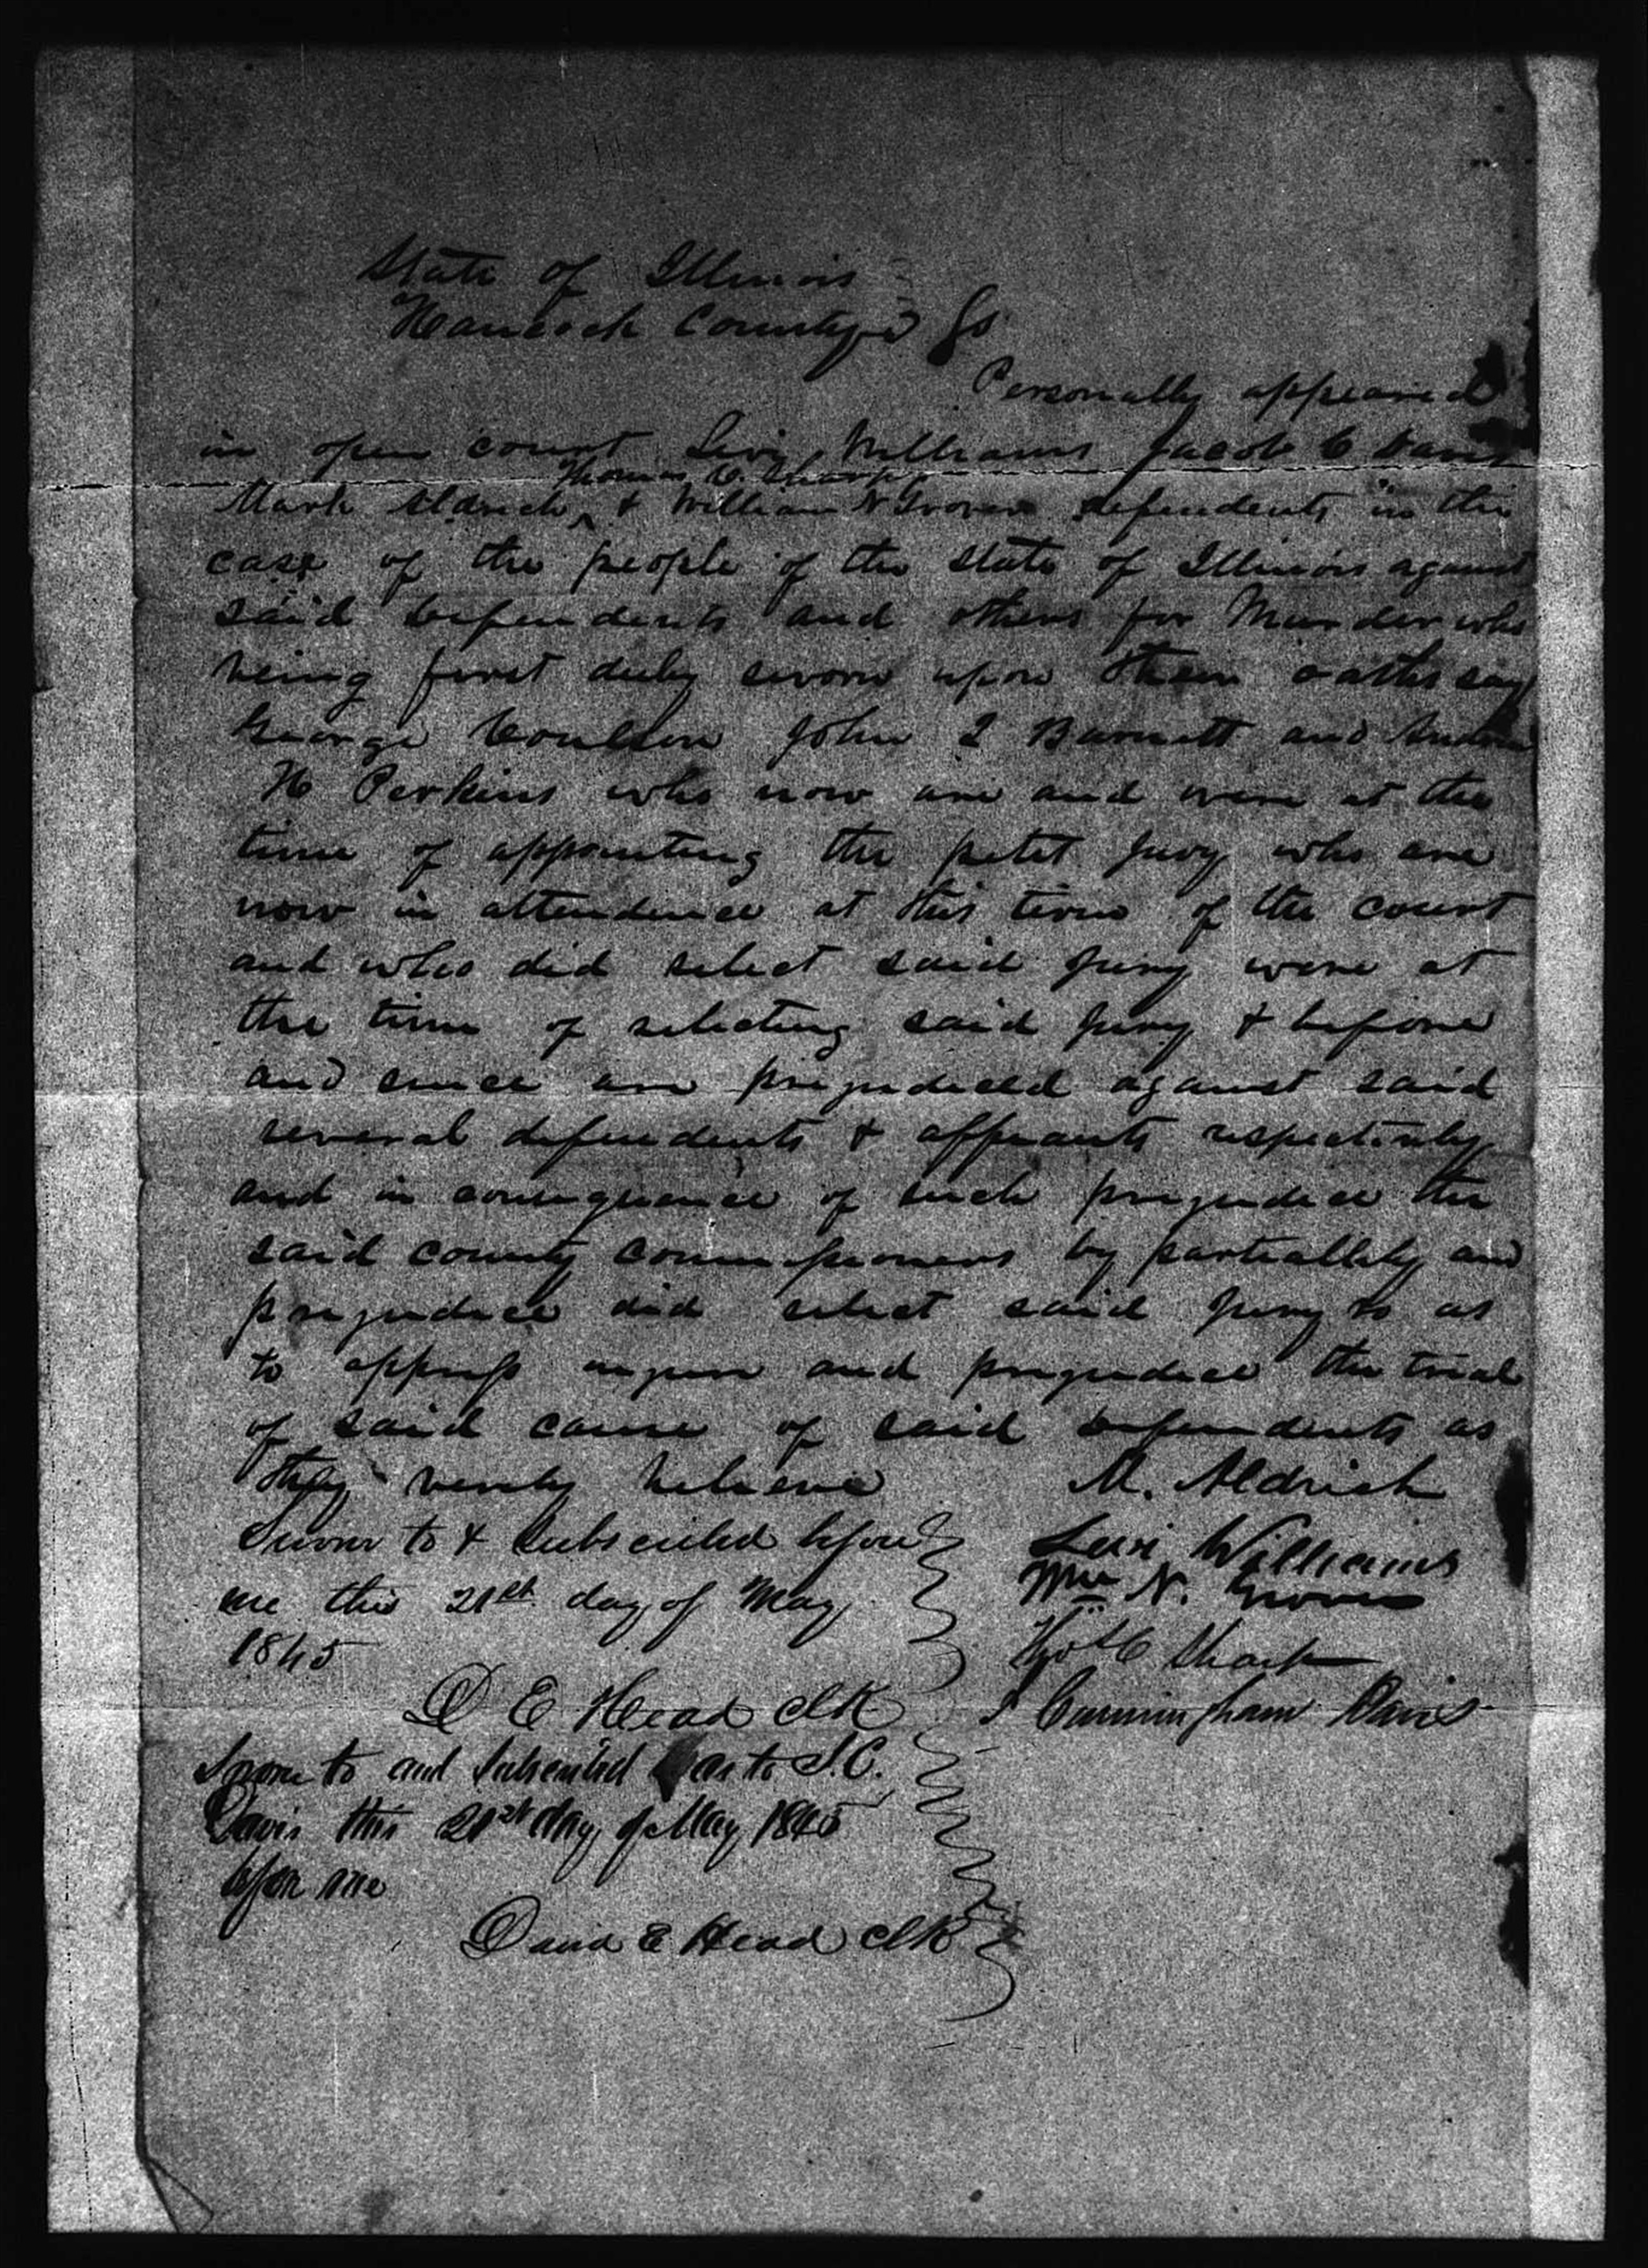 State of Illinois
Hancock County Ss
Personally appeared
in open court Levi Williams Jacob C Davis
Thomas C. Sharp
Mark Aldrich ^ & William N Grover defendents in the
case of the people of the State of Illinois against
said defendents and others for Murder who
being first duly sworn upon their oaths say
George Coulson John T Barnett and Andrew
H Perkins who now are and were at the
time of appointing the petit Jury who are
now in attendence at this term of the court
and who did select said Jury were at
the time of selecting said Jury & before
and since are prejudiced against said
several defendents & affiants respectively
and in consequence of such prejudice the
said county commissioners by partiallity and
prejudice did select said Jury so as
to oppress injure and prejudice the trial
of said cause of said defendents as
they verily believe
M. Aldrich
Sworn to & Subscribed before
me this 21st day of May
1845
Levi Williams
Wm N. Grover
Thos C Sharp
J Cunningham Davis
D E Head clk
Sworn to and Subscribed as to J. C.
Davis this 21st day of May 1845
before me
David E Head clk